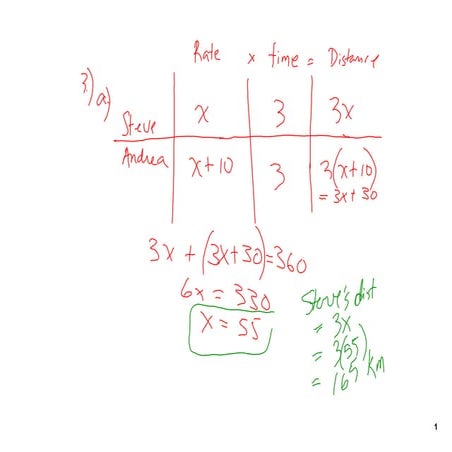 Rate x time = Distance
3) a)
Steve x 3 3x
Andrea x+10 3 3(x+10)
= 3x + 30
3x + (3x+30) = 360
6x = 330
x = 55
Steve's dist
= 3x
= 3(55)
= 165 km
1